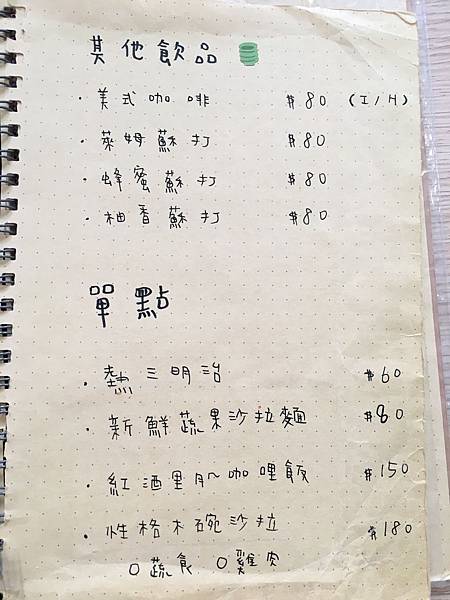 其他飲品
·美式咖啡 $80 (I/H)
·萊姆蘇打 $80
·蜂蜜蘇打 $80
·柚香蘇打 $80
單點
·熱三明治 $60
·新鮮蔬果沙拉麵 $80
·紅酒里肌咖哩飯 $150
·性格木碗沙拉 $180
○蔬食 ○雞肉